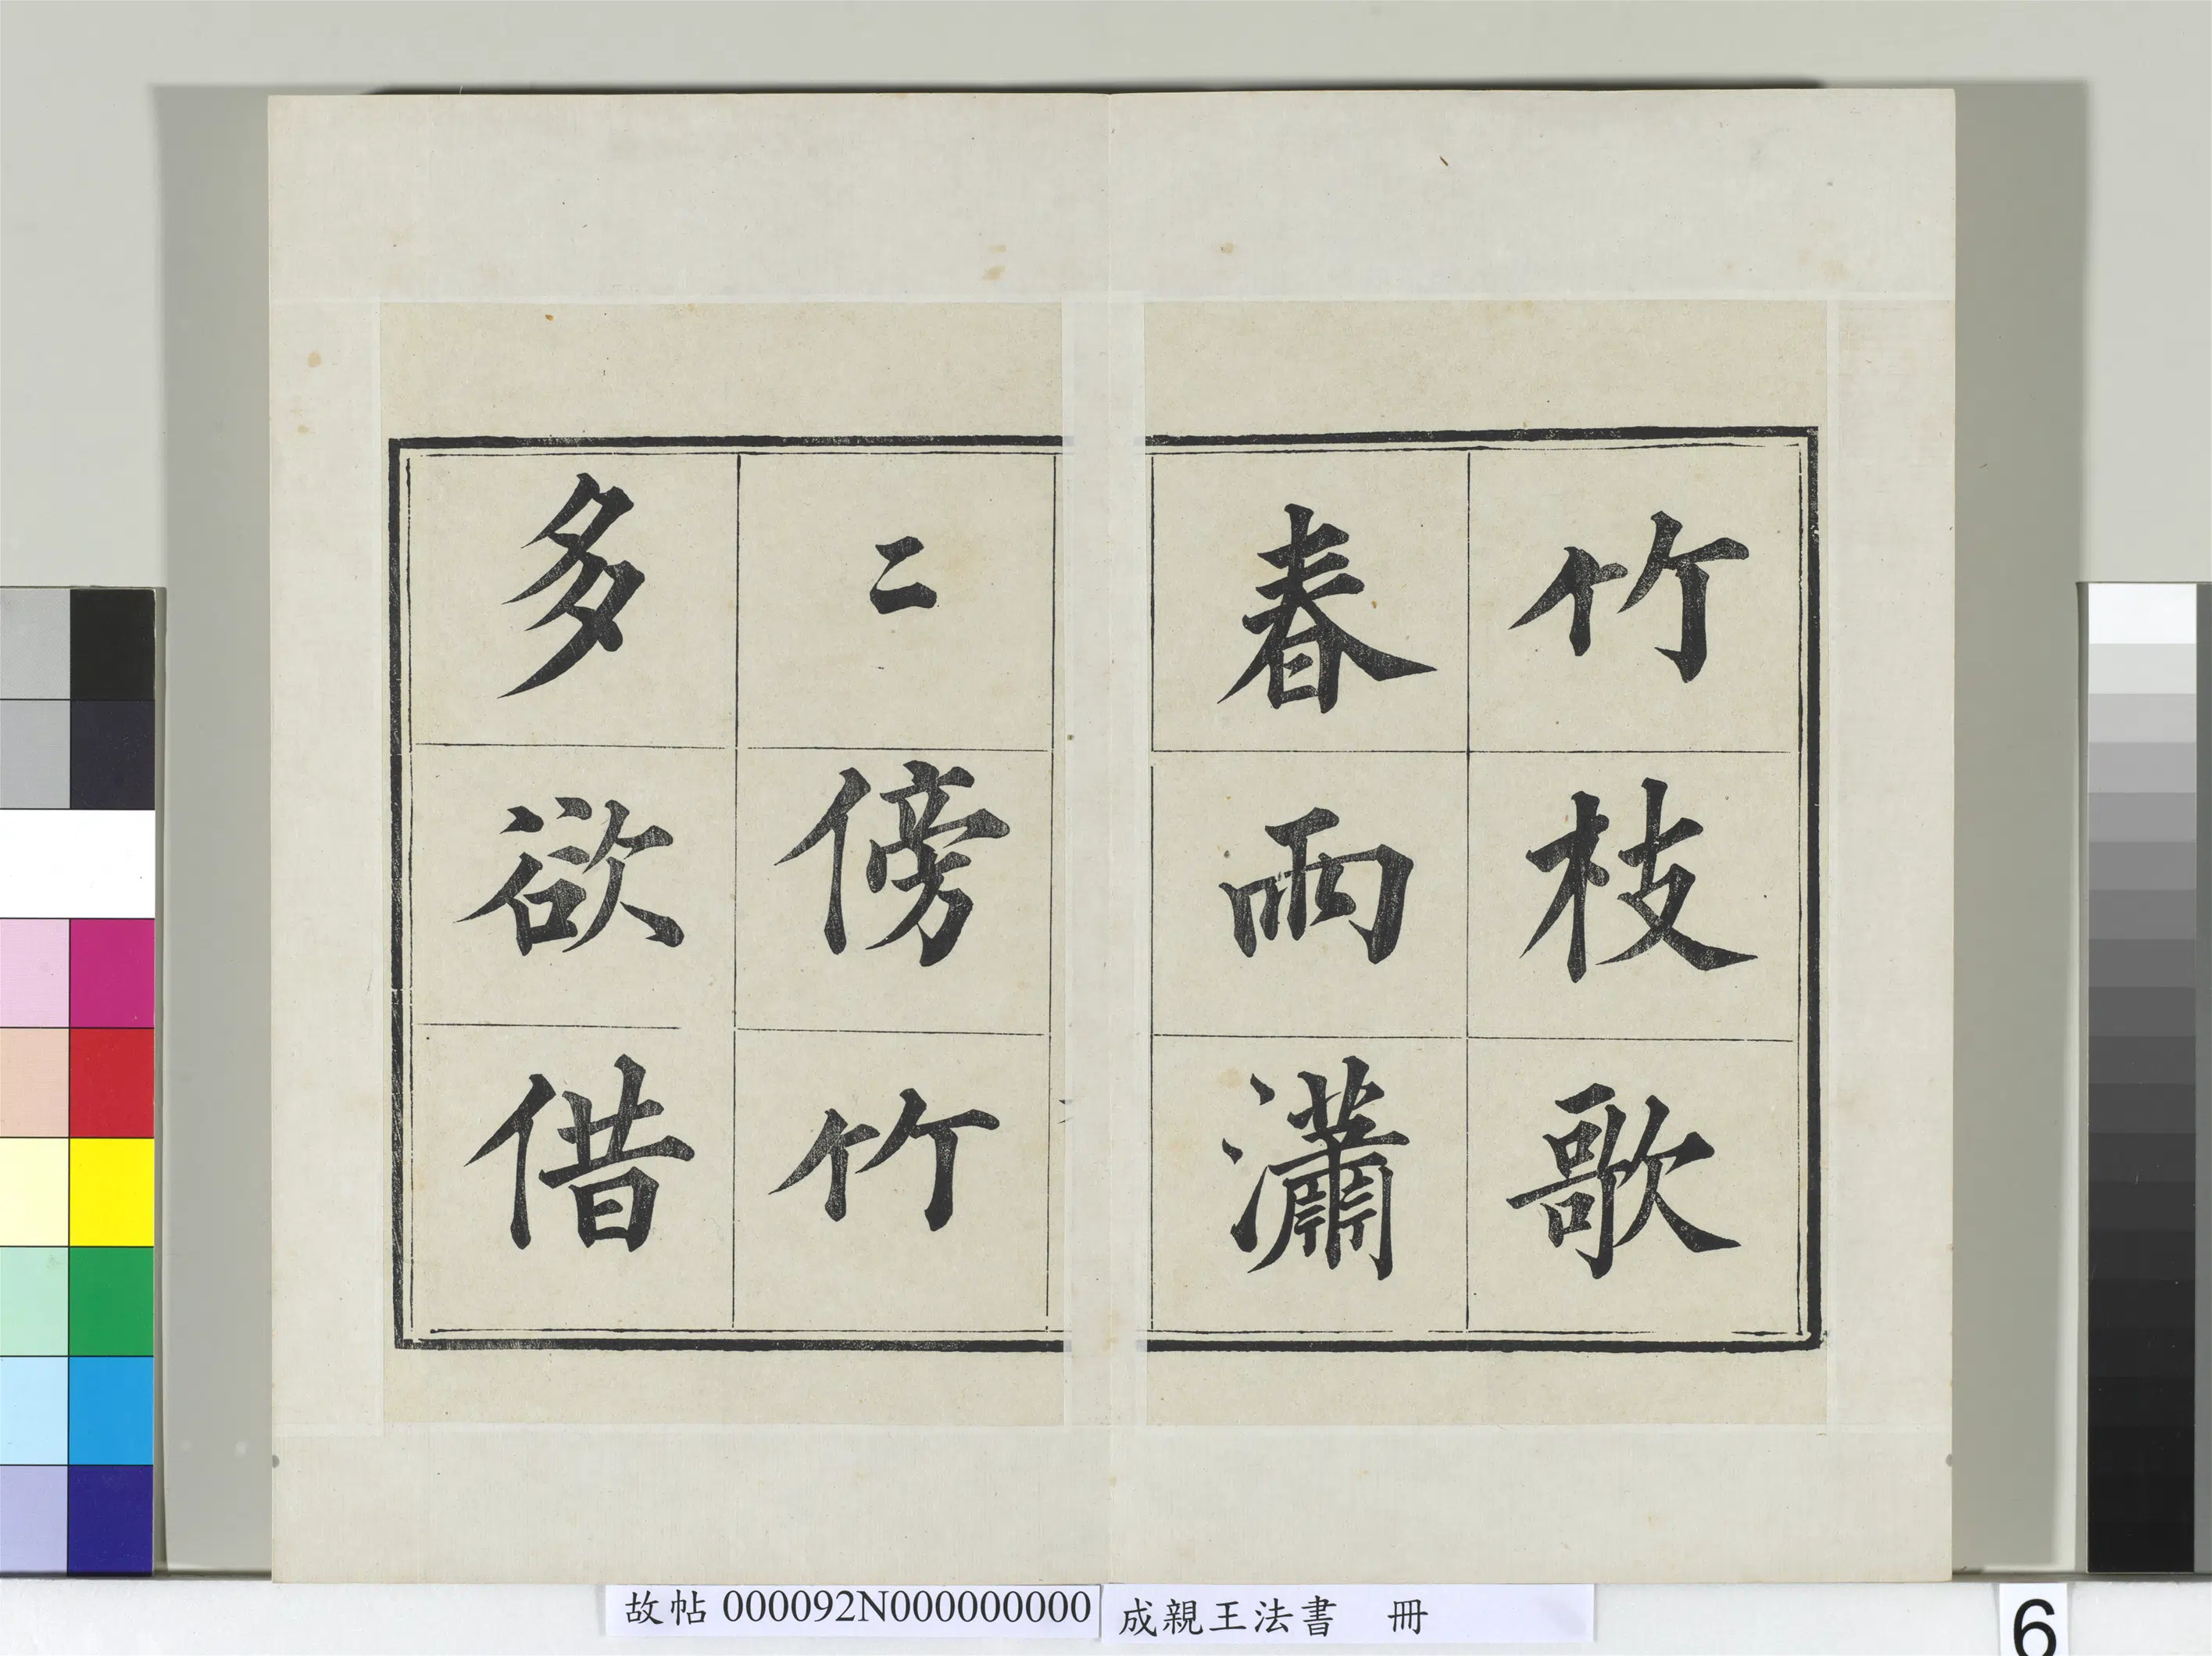 竹枝歌
春雨瀟
二傍竹
多欲借
故帖 000092N000000000
成親王法書 冊
6